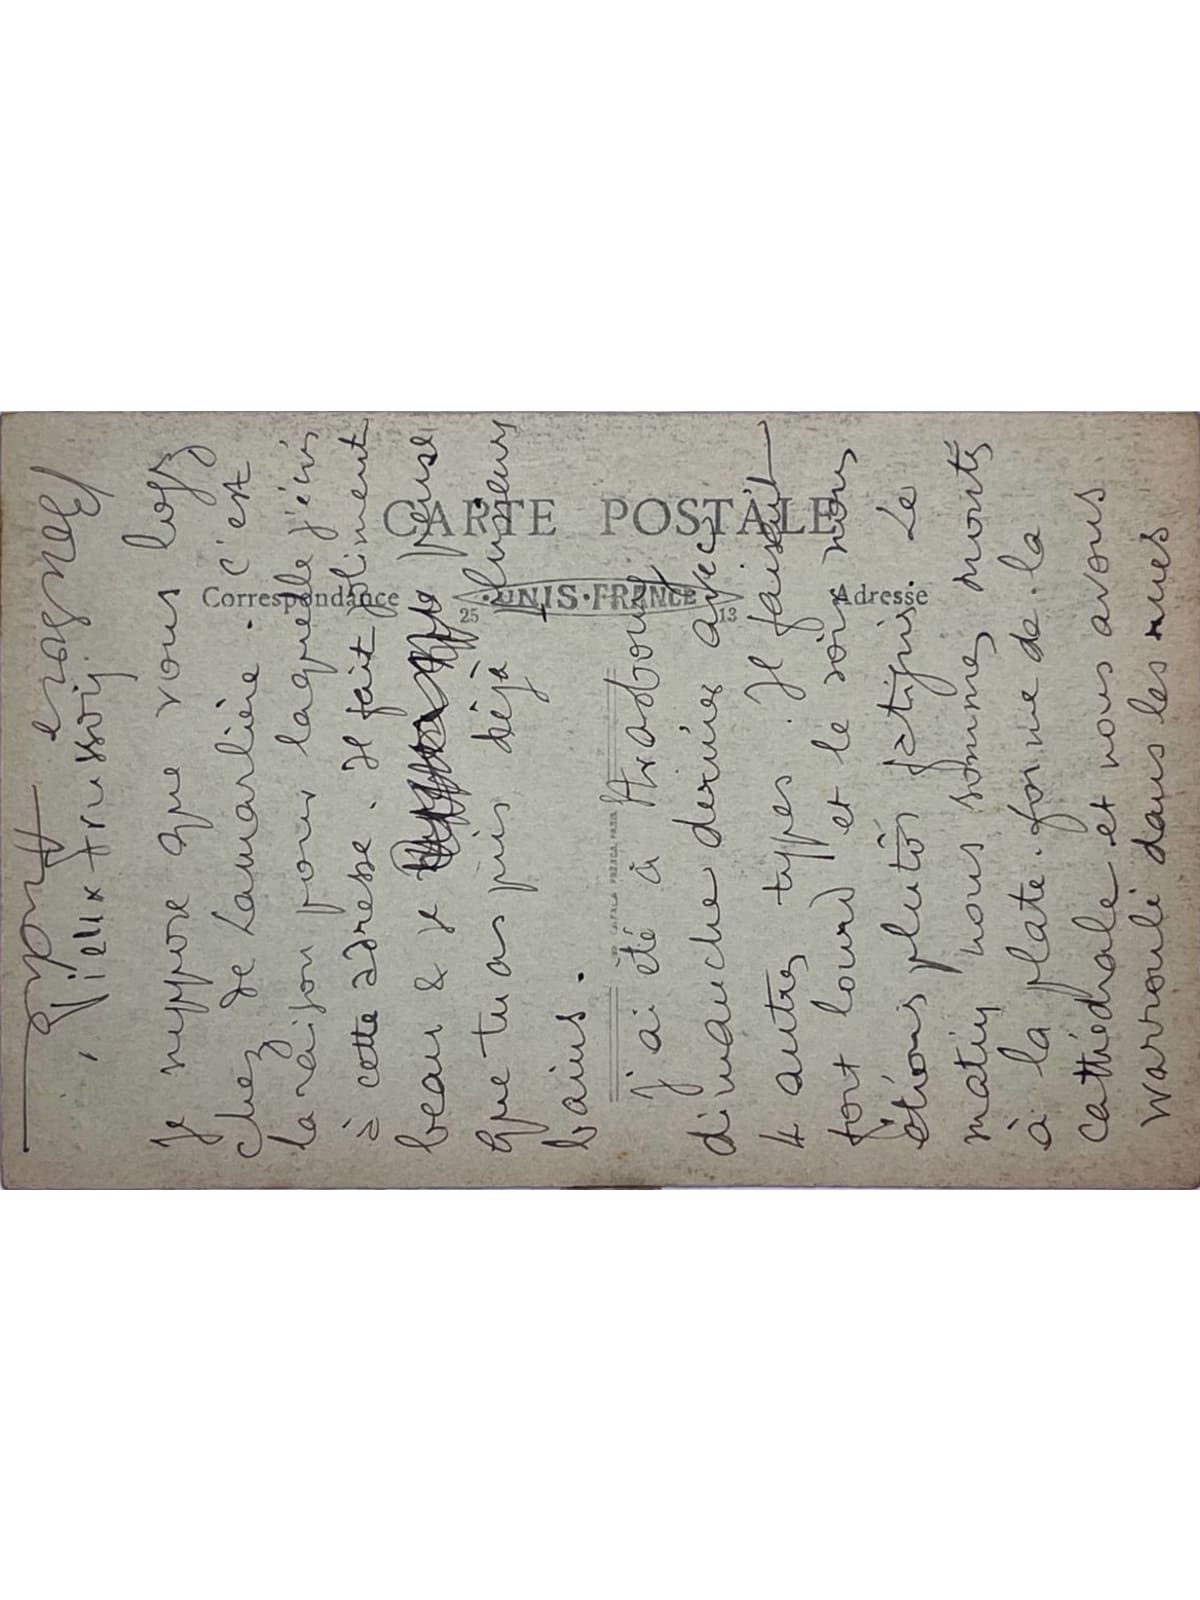 Vieux trussoiy.
Je suppose que vous logz
chez de Lamarlière. C'est
la raison pour laquelle j'écris
à cette adresse. Il fait poliment
beau & je pense
que tu as pris déjà plusieurs
bains.
j'ai été à Strasbourg
dimanche dernier avec
4 autres types. Il faisait
fort lourd et le soir nous
étions plutôt fatigués. Le
matin nous sommes montés
à la plate-forme de la
cathédrale et nous avons
warroulé dans les rues
CARTE POSTALE
Correspondance
25 UNIS-FRANCE 13
Adresse